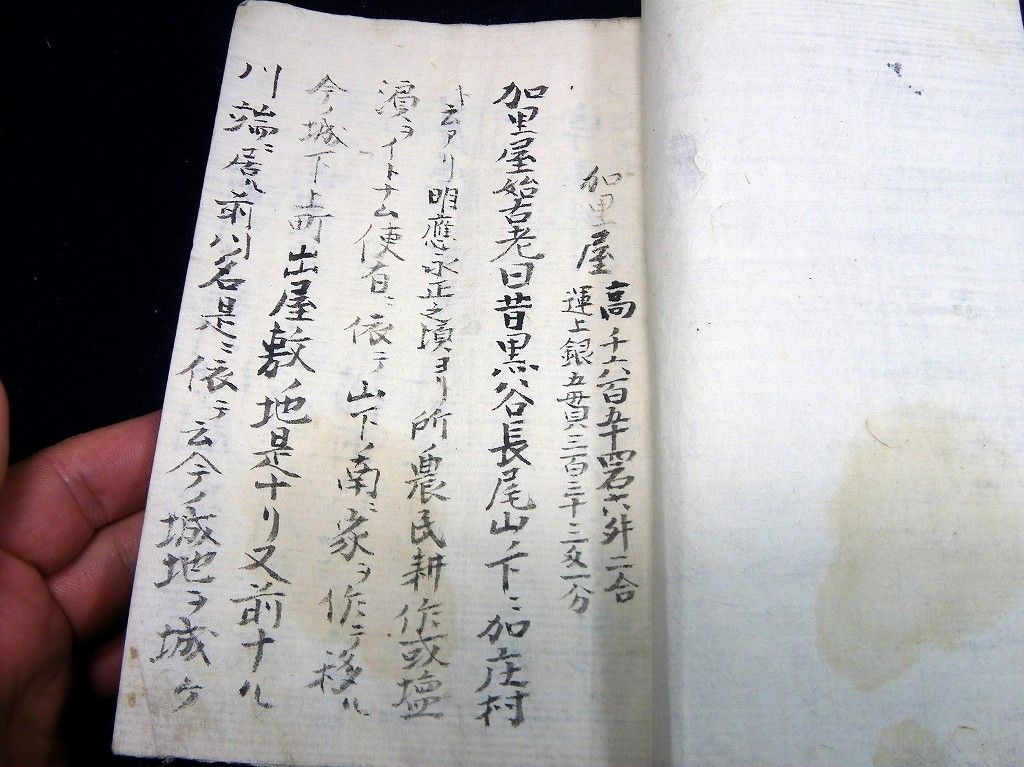 加里屋 高千六百五十四石六升二合
運上銀五貫三百三十三匁一分
加里屋始古老曰昔黒谷長尾山ノ下ニ加庄村
ト云アリ明應永正之頃ヨリ所ノ農民耕作或塩
濱ヲイトナム使有ニ依テ山下ノ南ニ家ヲ作テ移ル
今ノ城下上町出屋敷ノ地是ナリ又前ナル
川端ニ居ル前川名是ニ依テ云今ノ城地ヲ城ケ